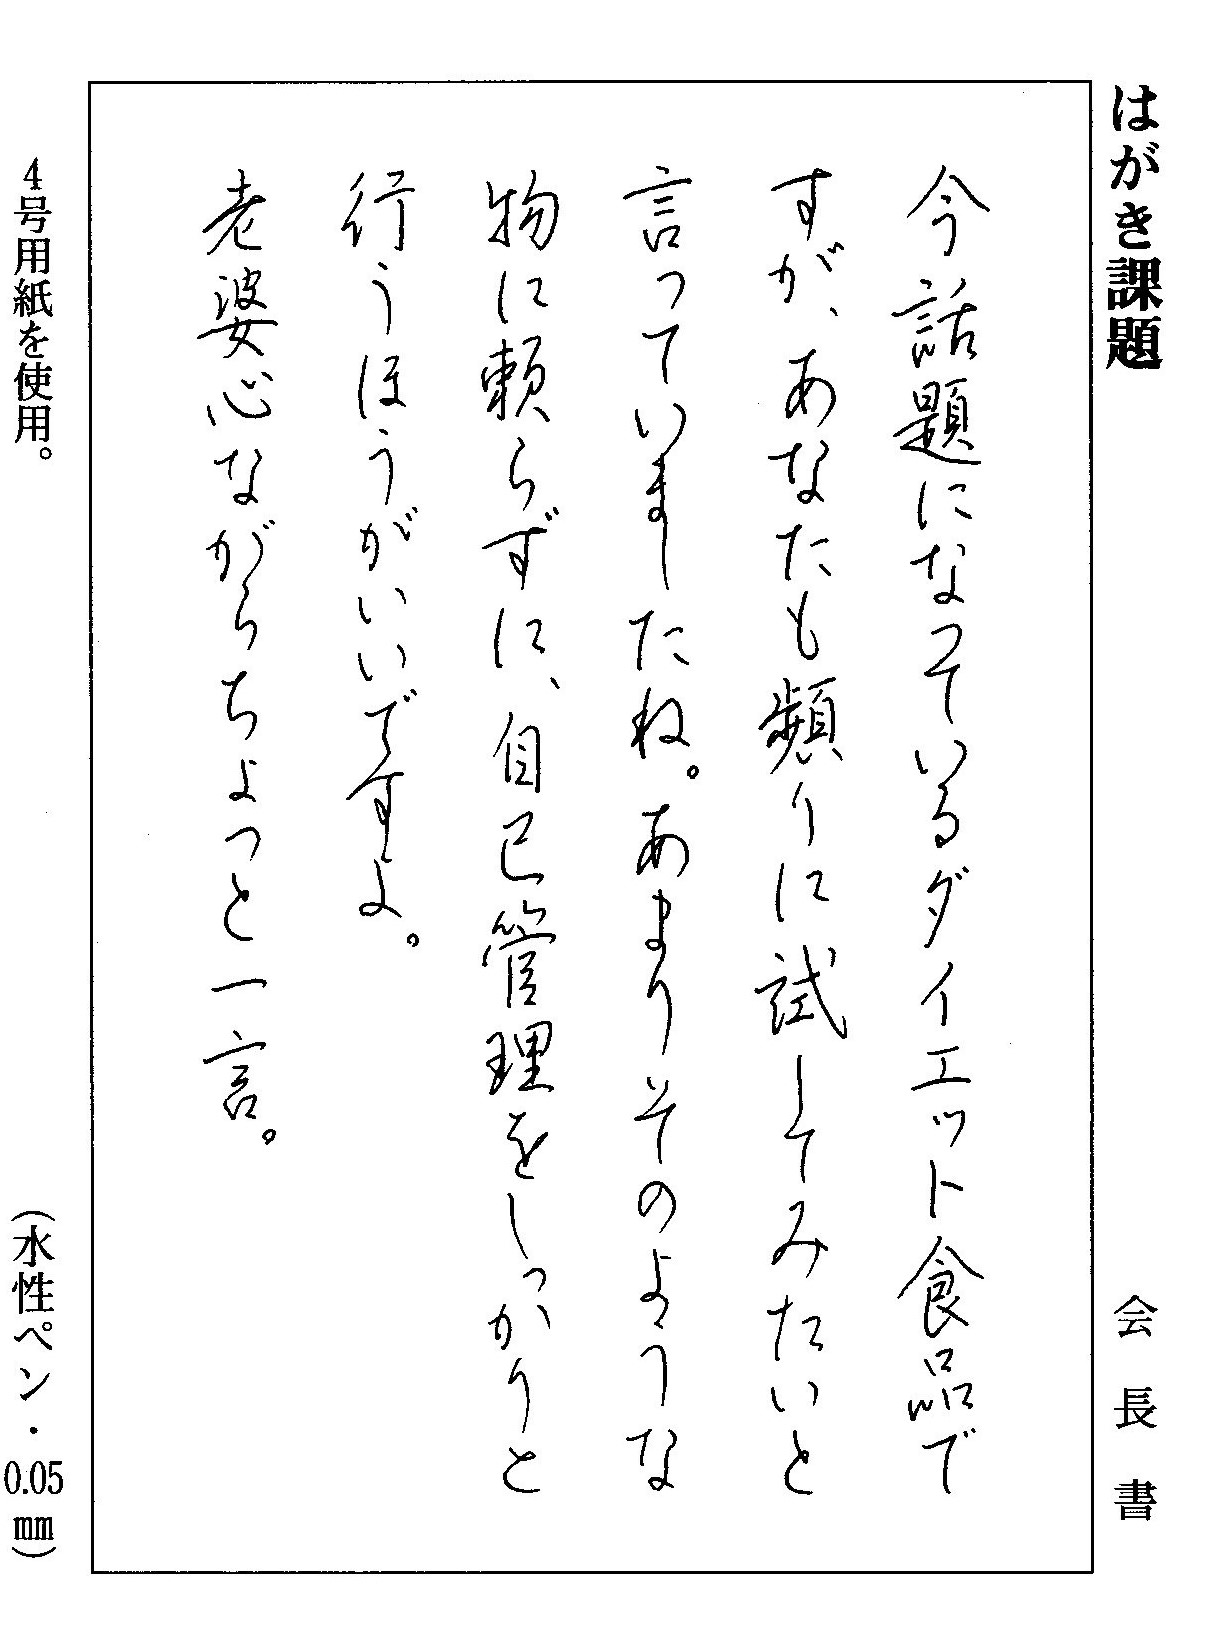 はがき課題
会長書
今話題になっているダイエット食品で
すが、あなたも頻りに試してみたいと
言っていましたね。あまりそのような
物に頼らずに、自己管理をしっかりと
行うほうがいいですよ。
老婆心ながらちょっと一言。
4号用紙を使用。
（水性ペン・0.05mm）